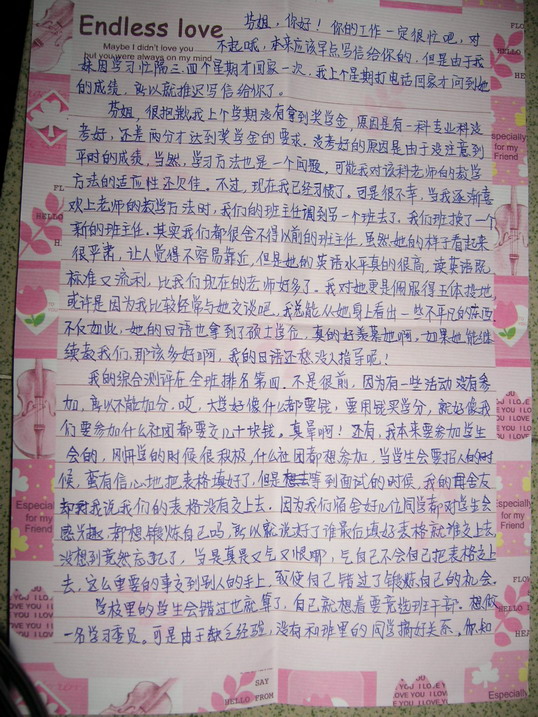 Endless love
Maybe I didn't love you
but you were always on my mind
芬姐，你好！你的工作一定很忙吧，对
不起哦，本来应该早点写信给你的，但是由于我
妹因学习忙隔三、四个星期才回家一次，我上个星期打电话回家才问到她
的成绩，所以就推迟写信给你了。
芬姐，很抱歉我上个学期没有拿到奖学金，原因是有一科专业科没
考好，还差两分才达到奖学金的要求。没考好的原因是由于没注意到
平时的成绩，当然，学习方法也是一个问题，可能我对该科老师的教学
方法的适应性还欠佳。不过，现在我已经习惯了。可是很不幸，当我逐渐喜
欢上老师的教学方法时，我们的班主任调到另一个班去了，我们班换了一个
新的班主任。其实我们都很舍不得以前的班主任，虽然她的样子看起来
很严肃，让人觉得不容易靠近，但是她的英语水平真的很高，读英语既
标准又流利，比我们现在的老师好多了。我对她更是佩服得五体投地，
或许是因为我比较经常与她交谈吧，我总能从她身上看出一些不平凡的东西。
不仅如此，她的日语也拿到了硕士学位，真的好羡慕她啊，如果她能继
续教我们，那该多好啊，我的日语还愁没人指导呢！
我的综合测评在全班排名第四。不是很前，因为有一些活动没有参
加，所以不能加分。哎，大学好像什么都要钱，要用钱买学分，就好像我
们要参加什么社团都要交几十块钱。真晕啊！还有，我本来要参加学生
会的，刚开学的时候很积极，什么社团都想参加，当学生会要招人的时
候，蛮有信心地把表格填好了，但是等到面试的时候，我的母舍友
却对我说我们的表格没有交上去。因为我们宿舍好几位同学都对学生会
感兴趣，都想锻炼自己吗，所以就说好了谁最后填好表格就谁交上去，
没想到竟然忘记了，当是真是又气又恨哪，气自己不会自己把表格交上
去，这么重要的事交到别人的手上，致使自己错过了锻炼自己的机会。
学校里的学生会错过也就算了，自己就想着要竞选班干部，想做
一名学习委员。可是由于缺乏经验，没有和班里的同学搞好关系。你知
Especially
for my
Friend
HELLO
SAY
HELLO FROM
YOU I LOVE